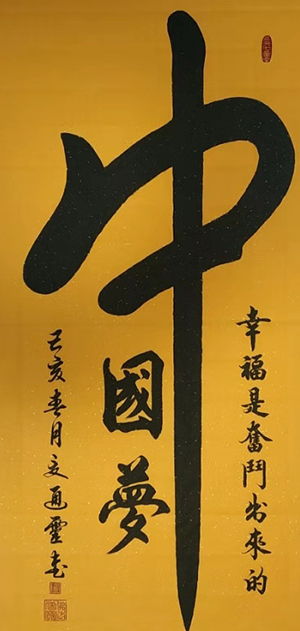 中國夢
幸福是奮鬥出來的
己亥春月文通靈書